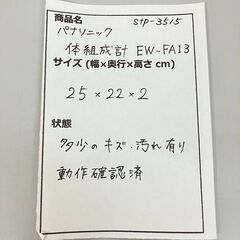 商品名 stp-3515
パナソニック
体組成計 EW-FA13
サイズ (幅×奥行×高さ cm)
25×22×2
状態
多少のキズ・汚れ有り
動作確認済